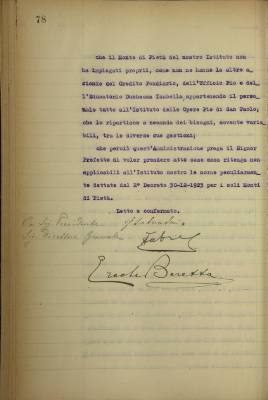 78
che il Monte di Pietà del nostro Istituto non
ha impiegati proprii, come non ne hanno le altre a-
ziende del Credito Fondiario, dell'Ufficio Pio e del-
l'Educatorio Duchessa Isabella, appartenendo il perso
nale tutto all'Istituto delle Opere Pie di San Paolo,
che lo ripartisce a seconda dei bisogni, sovente varia
bili, tra le diverse sue gestioni;
che perciò quest'Amministrazione prega il Signor
Prefetto di voler prendere atto come essa ritenga non
applicabili all'Istituto nostro le norme peculiarmen-
te dettate dal R° Decreto 30-12-1923 per i soli Monti
di Pietà.
Letto e confermato.
Sig Presidente
Sig Direttore Generale
Beretta